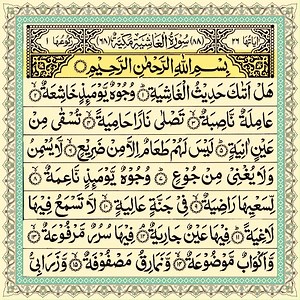 آیاتها ٢٦ (٨٨) سُوْرَةُ الْغَاشِيَةِ مَكِّيَّةٌ (٦٨) رکوعها ١
بِسْمِ اللّٰهِ الرَّحْمٰنِ الرَّحِيْمِ
هَلْ اَتٰىكَ حَدِيْثُ الْغَاشِيَةِ ١ وُجُوْهٌ يَّوْمَئِذٍ خَاشِعَةٌ ٢
عَامِلَةٌ نَّاصِبَةٌ ٣ تَصْلٰى نَارًا حَامِيَةً ٤ تُسْقٰى مِنْ
عَيْنٍ اٰنِيَةٍ ٥ لَيْسَ لَهُمْ طَعَامٌ اِلَّا مِنْ ضَرِيْعٍ ٦ لَّا يُسْمِنُ
وَلَا يُغْنِيْ مِنْ جُوْعٍ ٧ وُجُوْهٌ يَّوْمَئِذٍ نَّاعِمَةٌ ٨
لِّسَعْيِهَا رَاضِيَةٌ ٩ فِيْ جَنَّةٍ عَالِيَةٍ ١٠ لَّا تَسْمَعُ فِيْهَا
لَاغِيَةً ١١ فِيْهَا عَيْنٌ جَارِيَةٌ ١٢ فِيْهَا سُرُرٌ مَّرْفُوْعَةٌ ١٣
وَّاَكْوَابٌ مَّوْضُوْعَةٌ ١٤ وَّنَمَارِقُ مَصْفُوْفَةٌ ١٥ وَّزَرَابِيُّ